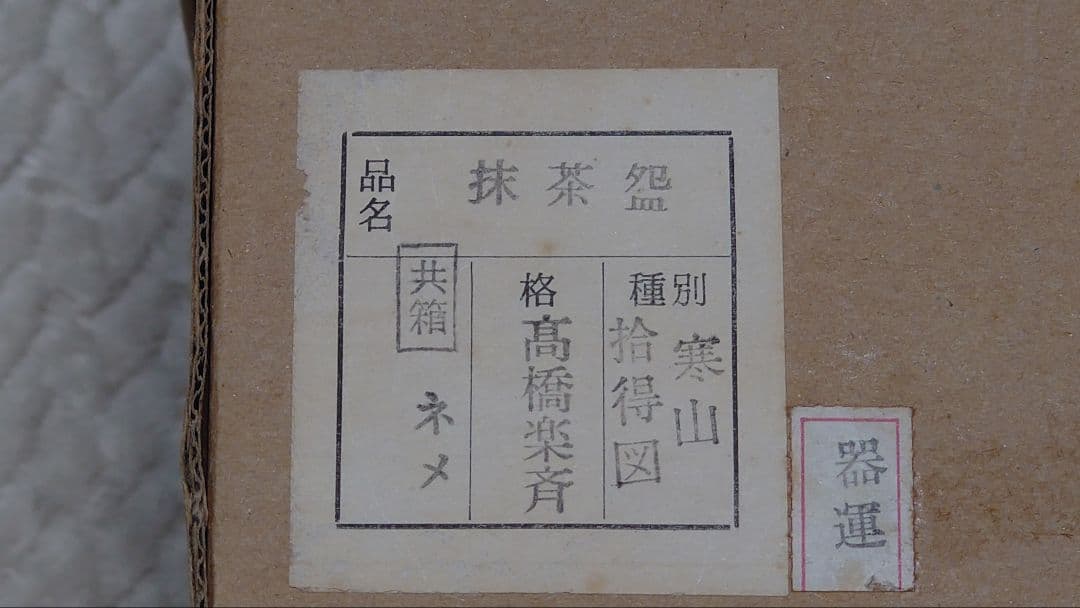 品名
抹茶盌
種別
寒山
拾得図
格
髙橋楽斉
共箱
ネメ
器運